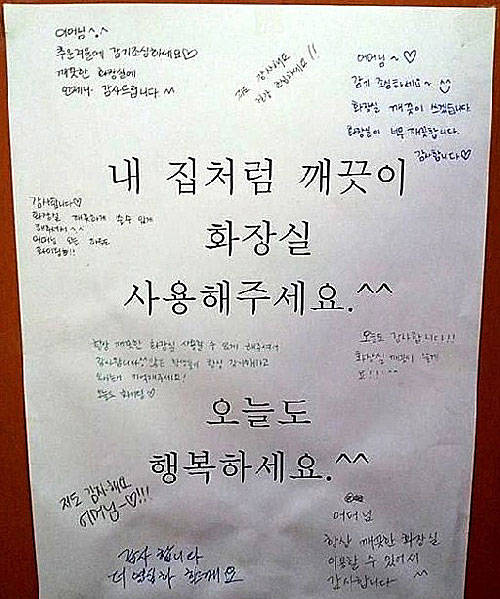 어머님^.^
추운겨울에 감기조심하세요♡
깨끗한 화장실에
언제나 감사드립니다 ^^
저도 감사해요
건강 조심하세요!!
어머님~♡
감기 조심하세요~
화장실 깨끗이 쓰겠습니다
화장실이 너무 깨끗합니다.
감사합니다♡
내 집처럼 깨끗이
화장실
사용해주세요.^^
감사합니다♡
화장실 깨끗하게 쓸수 있게
해주셔서 ^^
어머님 오늘 하루도
화이팅!!
항상 깨끗한 화장실 사용할 수 있게 해주셔서
감사합니다 많은 학생들이 항상 감사해하고
기억해주세요!
오늘도 화이팅♡
오늘도 감사합니다!!
화장실 깨끗이 쓸게
요!!^^
오늘도
행복하세요.^^
저도 감사해요
어머님~♡!!!
감사 합니다
더 열심히 할게요
어머님
항상 깨끗한 화장실
이용할 수 있어서
감사합니다